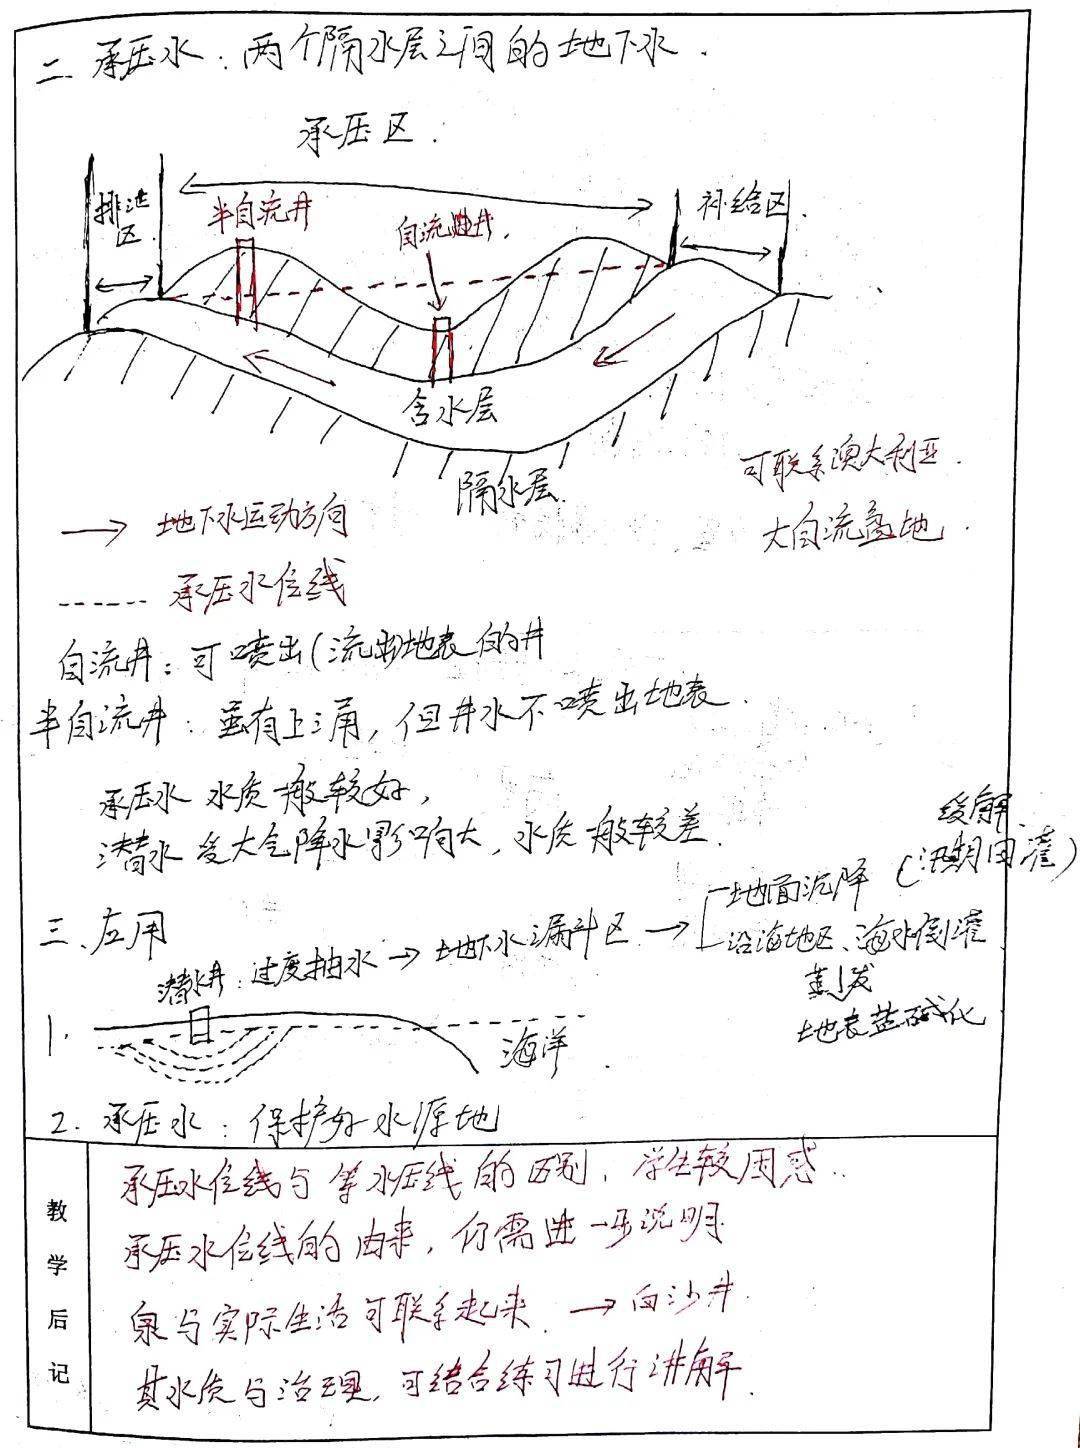 二、承压水：两个隔水层之间的地下水．
承压区．
排泄区
半自流井
自流井．
补给区．
含水层
隔水层．
可联系澳大利亚．
大自流盆地．
→ 地下水运动方向
------ 承压水位线
自流井：可喷出(流出)地表的井
半自流井：虽有上涌，但井水不喷出地表．
承压水 水质一般较好，
潜水 受大气降水影响大，水质一般较差．
缓解．
(汛期回灌)
三、应用
潜水井：过度抽水→地下水漏斗区→地面沉降
沿海地区、海水倒灌
蒸发
地表盐碱化
1.
海洋．
2. 承压水：保护好水源地
教学后记
承压水位线与等水压线的区别，学生较困惑．
承压水位线的由来，仍需进一步说明
泉与实际生活可联系起来．→白沙井．
其水质与治理，可结合练习进行讲解．